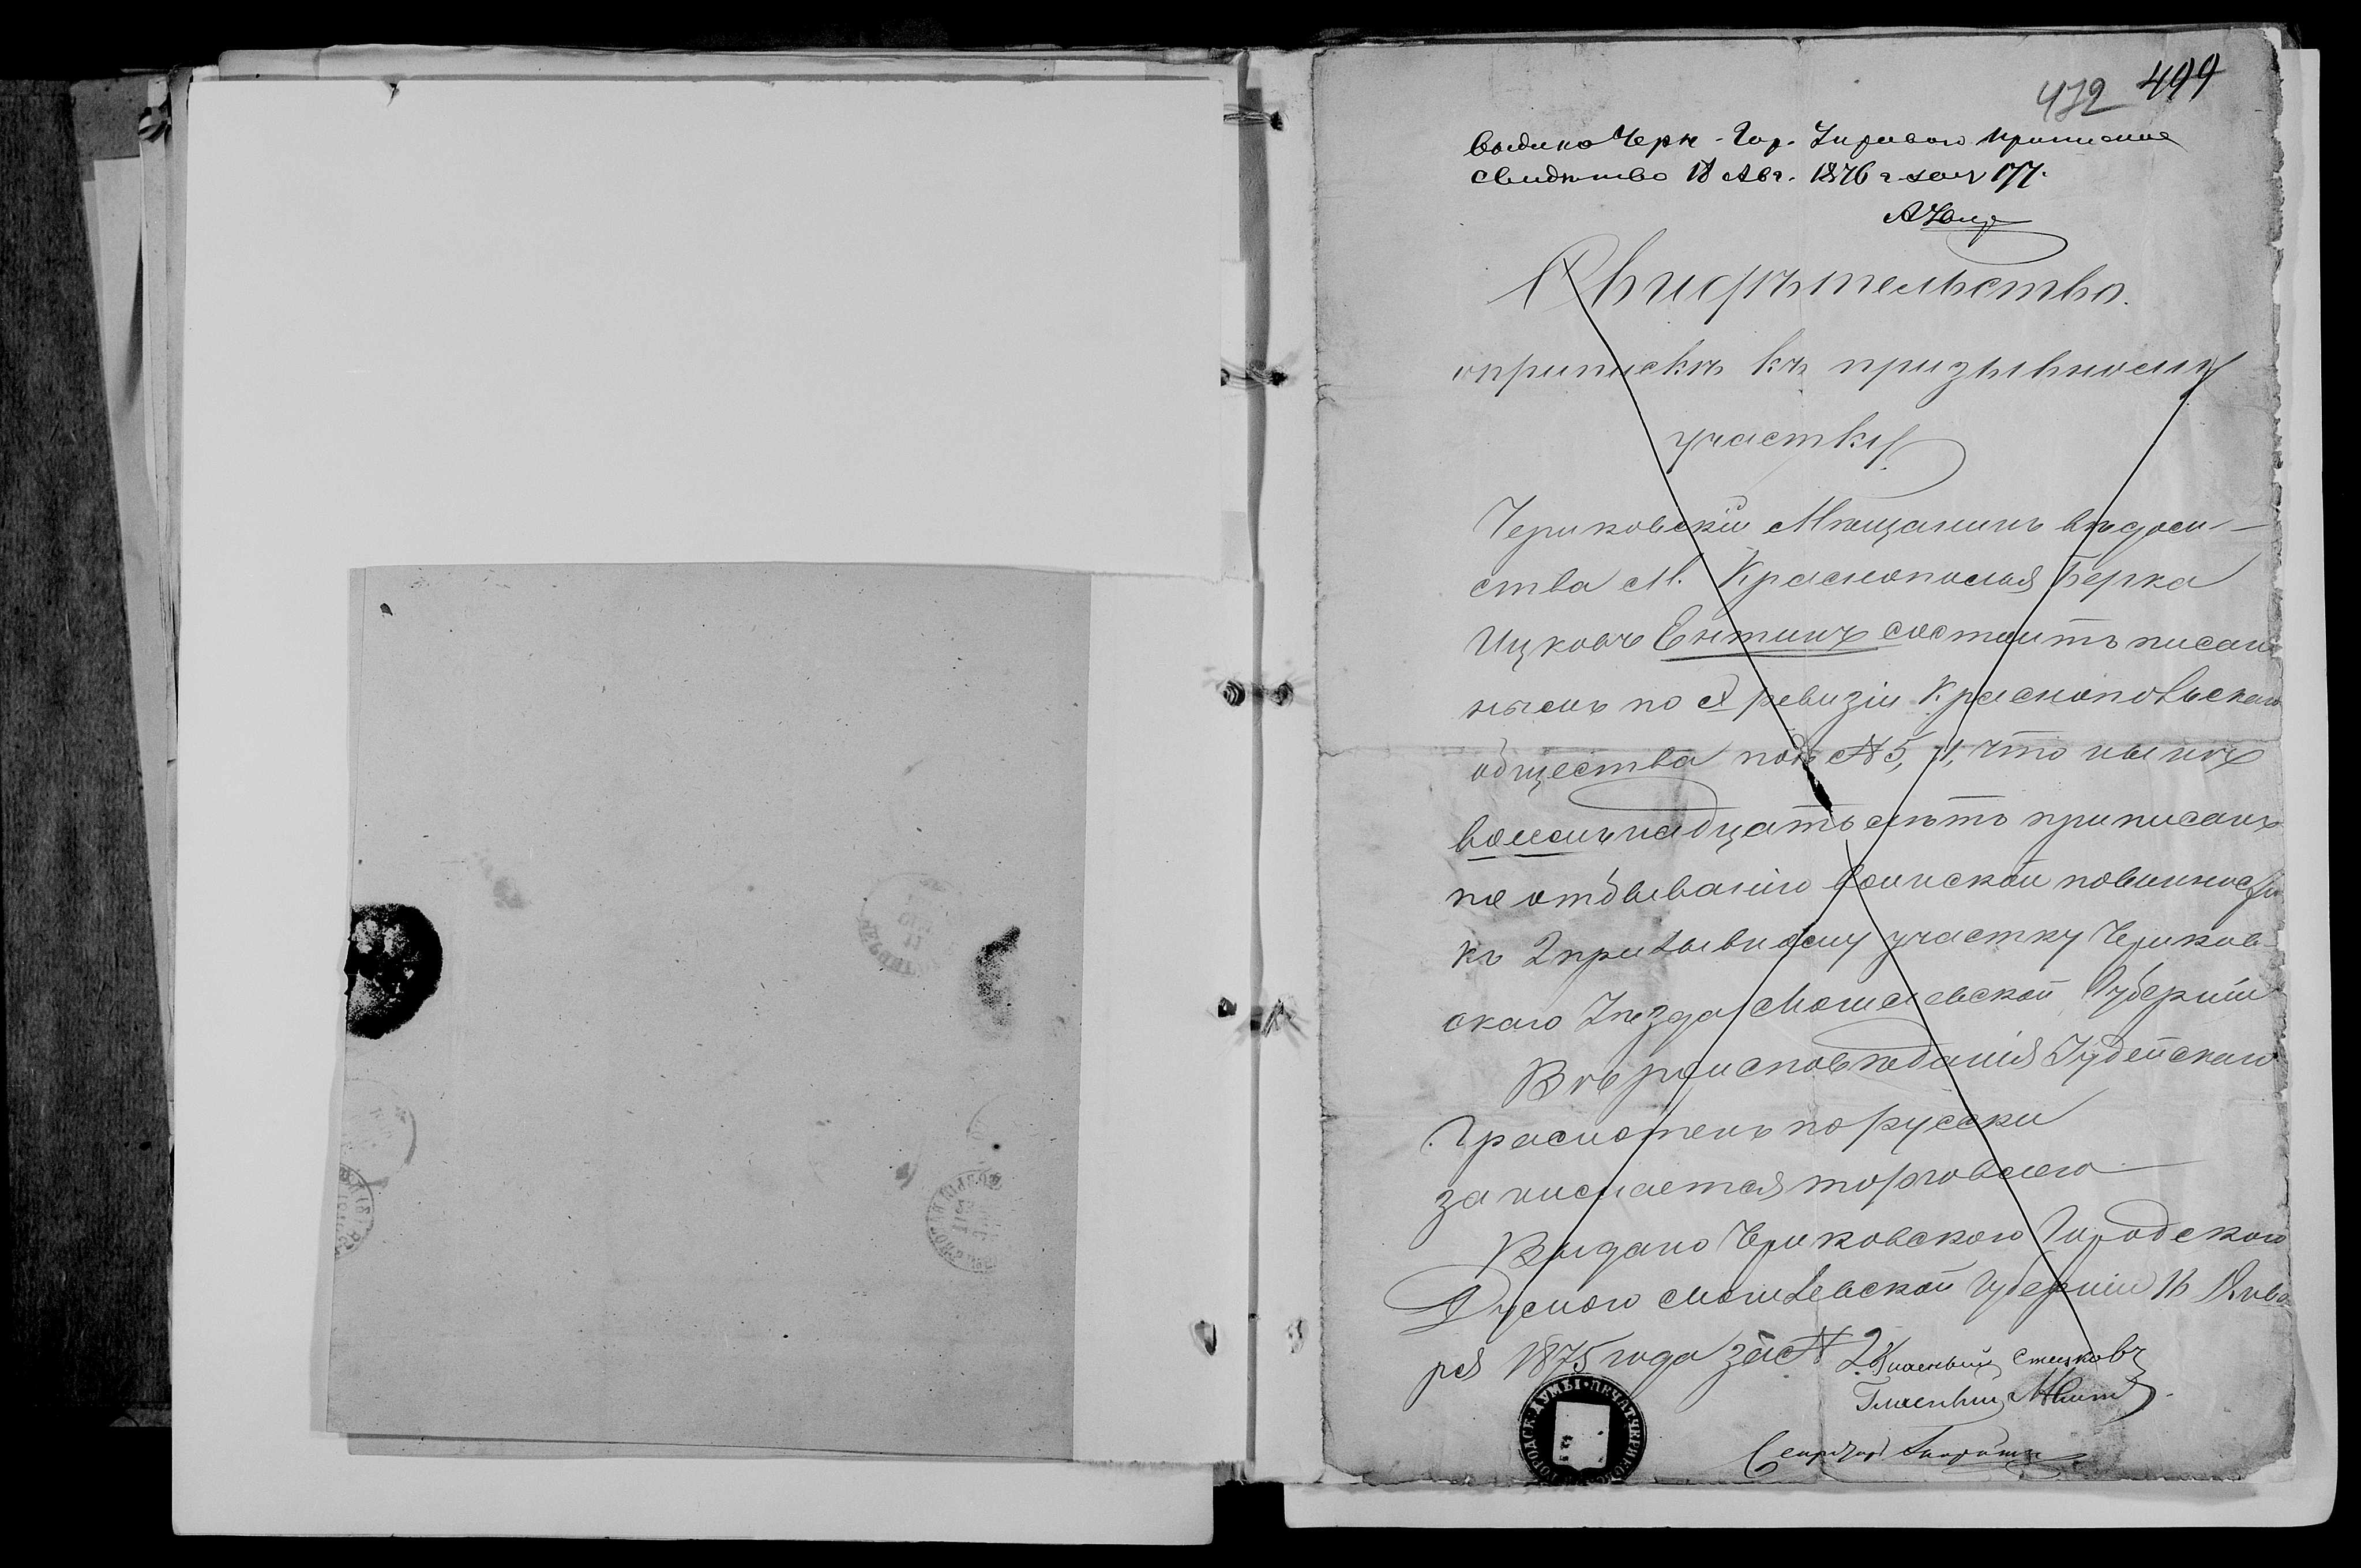 472 499
Выдано Черк. Гор. Управою приписное
свидѣтельство 18 Авг. 1876 г за № 177.
Свидѣтельство.
о припискѣ къ призывному
участку.
Чериковскій Мѣщанинъ вѣдом-
ства М. Краснополья Берка
Ицковъ Ентинъ состоитъ писан
нымъ по X ревизіи Краснопольскаго
общества подъ № 5, что нынѣ
восемьнадцать лѣтъ приписанъ
по отбыванію воинской повинности
къ 2 призывному участку Чериков-
скаго Уѣзда Могилевской Губерніи
Вѣроисповѣданія Іудейскаго
Грамотенъ по русски
занимается торговлею
Выдано Чериковскою Городскою
Думою Могилевской Губерніи 16 Янва
ря 1875 года за № 2
Гласный
Гласный
Секретарь
ГОРОДСК. ДУМЫ • ПЕЧАТ. ЧЕРИКОВСК